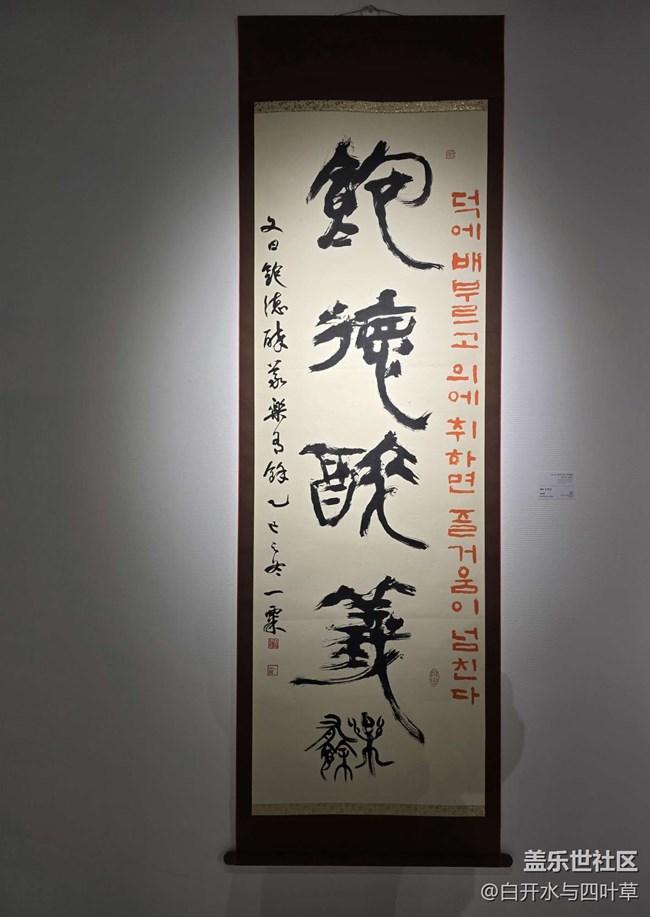 덕에 배부르고 의에 취하면 즐거움이 넘친다
飽德醉義
樂有餘
文曰飽德醉義樂有餘乙巳之冬一粟
盖乐世社区
@白开水与四叶草